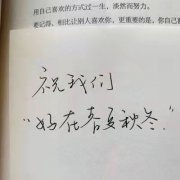 用自己喜欢的方式过一生,淡然而努力。
要记得,相比让别人喜欢你,更重要的是,你自己喜
祝我们
“好在春夏秋冬.”